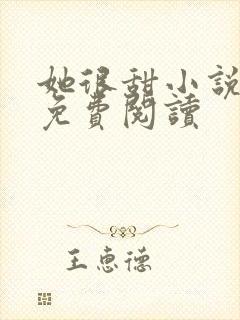 她很甜小說
免費閱讀
王惠德